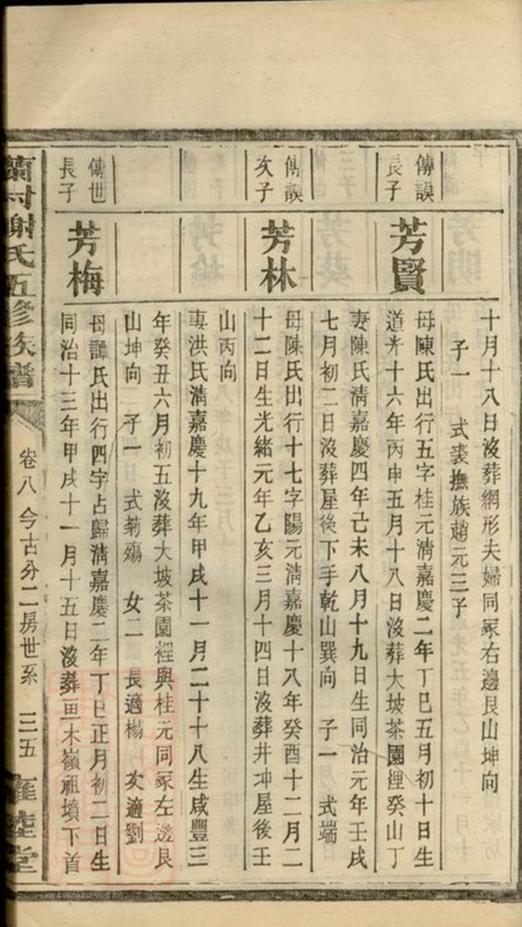 十月十八日沒葬網形夫婦同冢右邊艮山坤向
子一 式裘撫族趙元三子
傳謨
長子
芳賢
母陳氏出行五字桂元淸嘉慶二年丁巳五月初十日生
道光十六年丙申五月十八日沒葬大坡茶園裡癸山丁
妻陳氏淸嘉慶四年己未八月十九日生同治元年壬戌
七月初二日沒葬屋後下手乾山巽向 子一 式端
傳謨
次子
芳林
母陳氏出行十七字陽元淸嘉慶十八年癸酉十二月二
十二日生光緒元年乙亥三月十四日沒葬井坤屋後壬
山丙向
妻洪氏淸嘉慶十九年甲戌十一月二十十八生咸豐三
年癸丑六月初五沒葬大坡茶園裡與桂元同冢左邊艮
山坤向 子一 式菊殤 女二 長適楊 次適劉
傳世
長子
芳梅
母譚氏出行四字占歸淸嘉慶二年丁巳正月初二日生
同治十三年甲戌十一月十五日沒葬畫木嶺祖墳下首
謝氏五修族譜
卷八 今古分二房世系 三五
堂